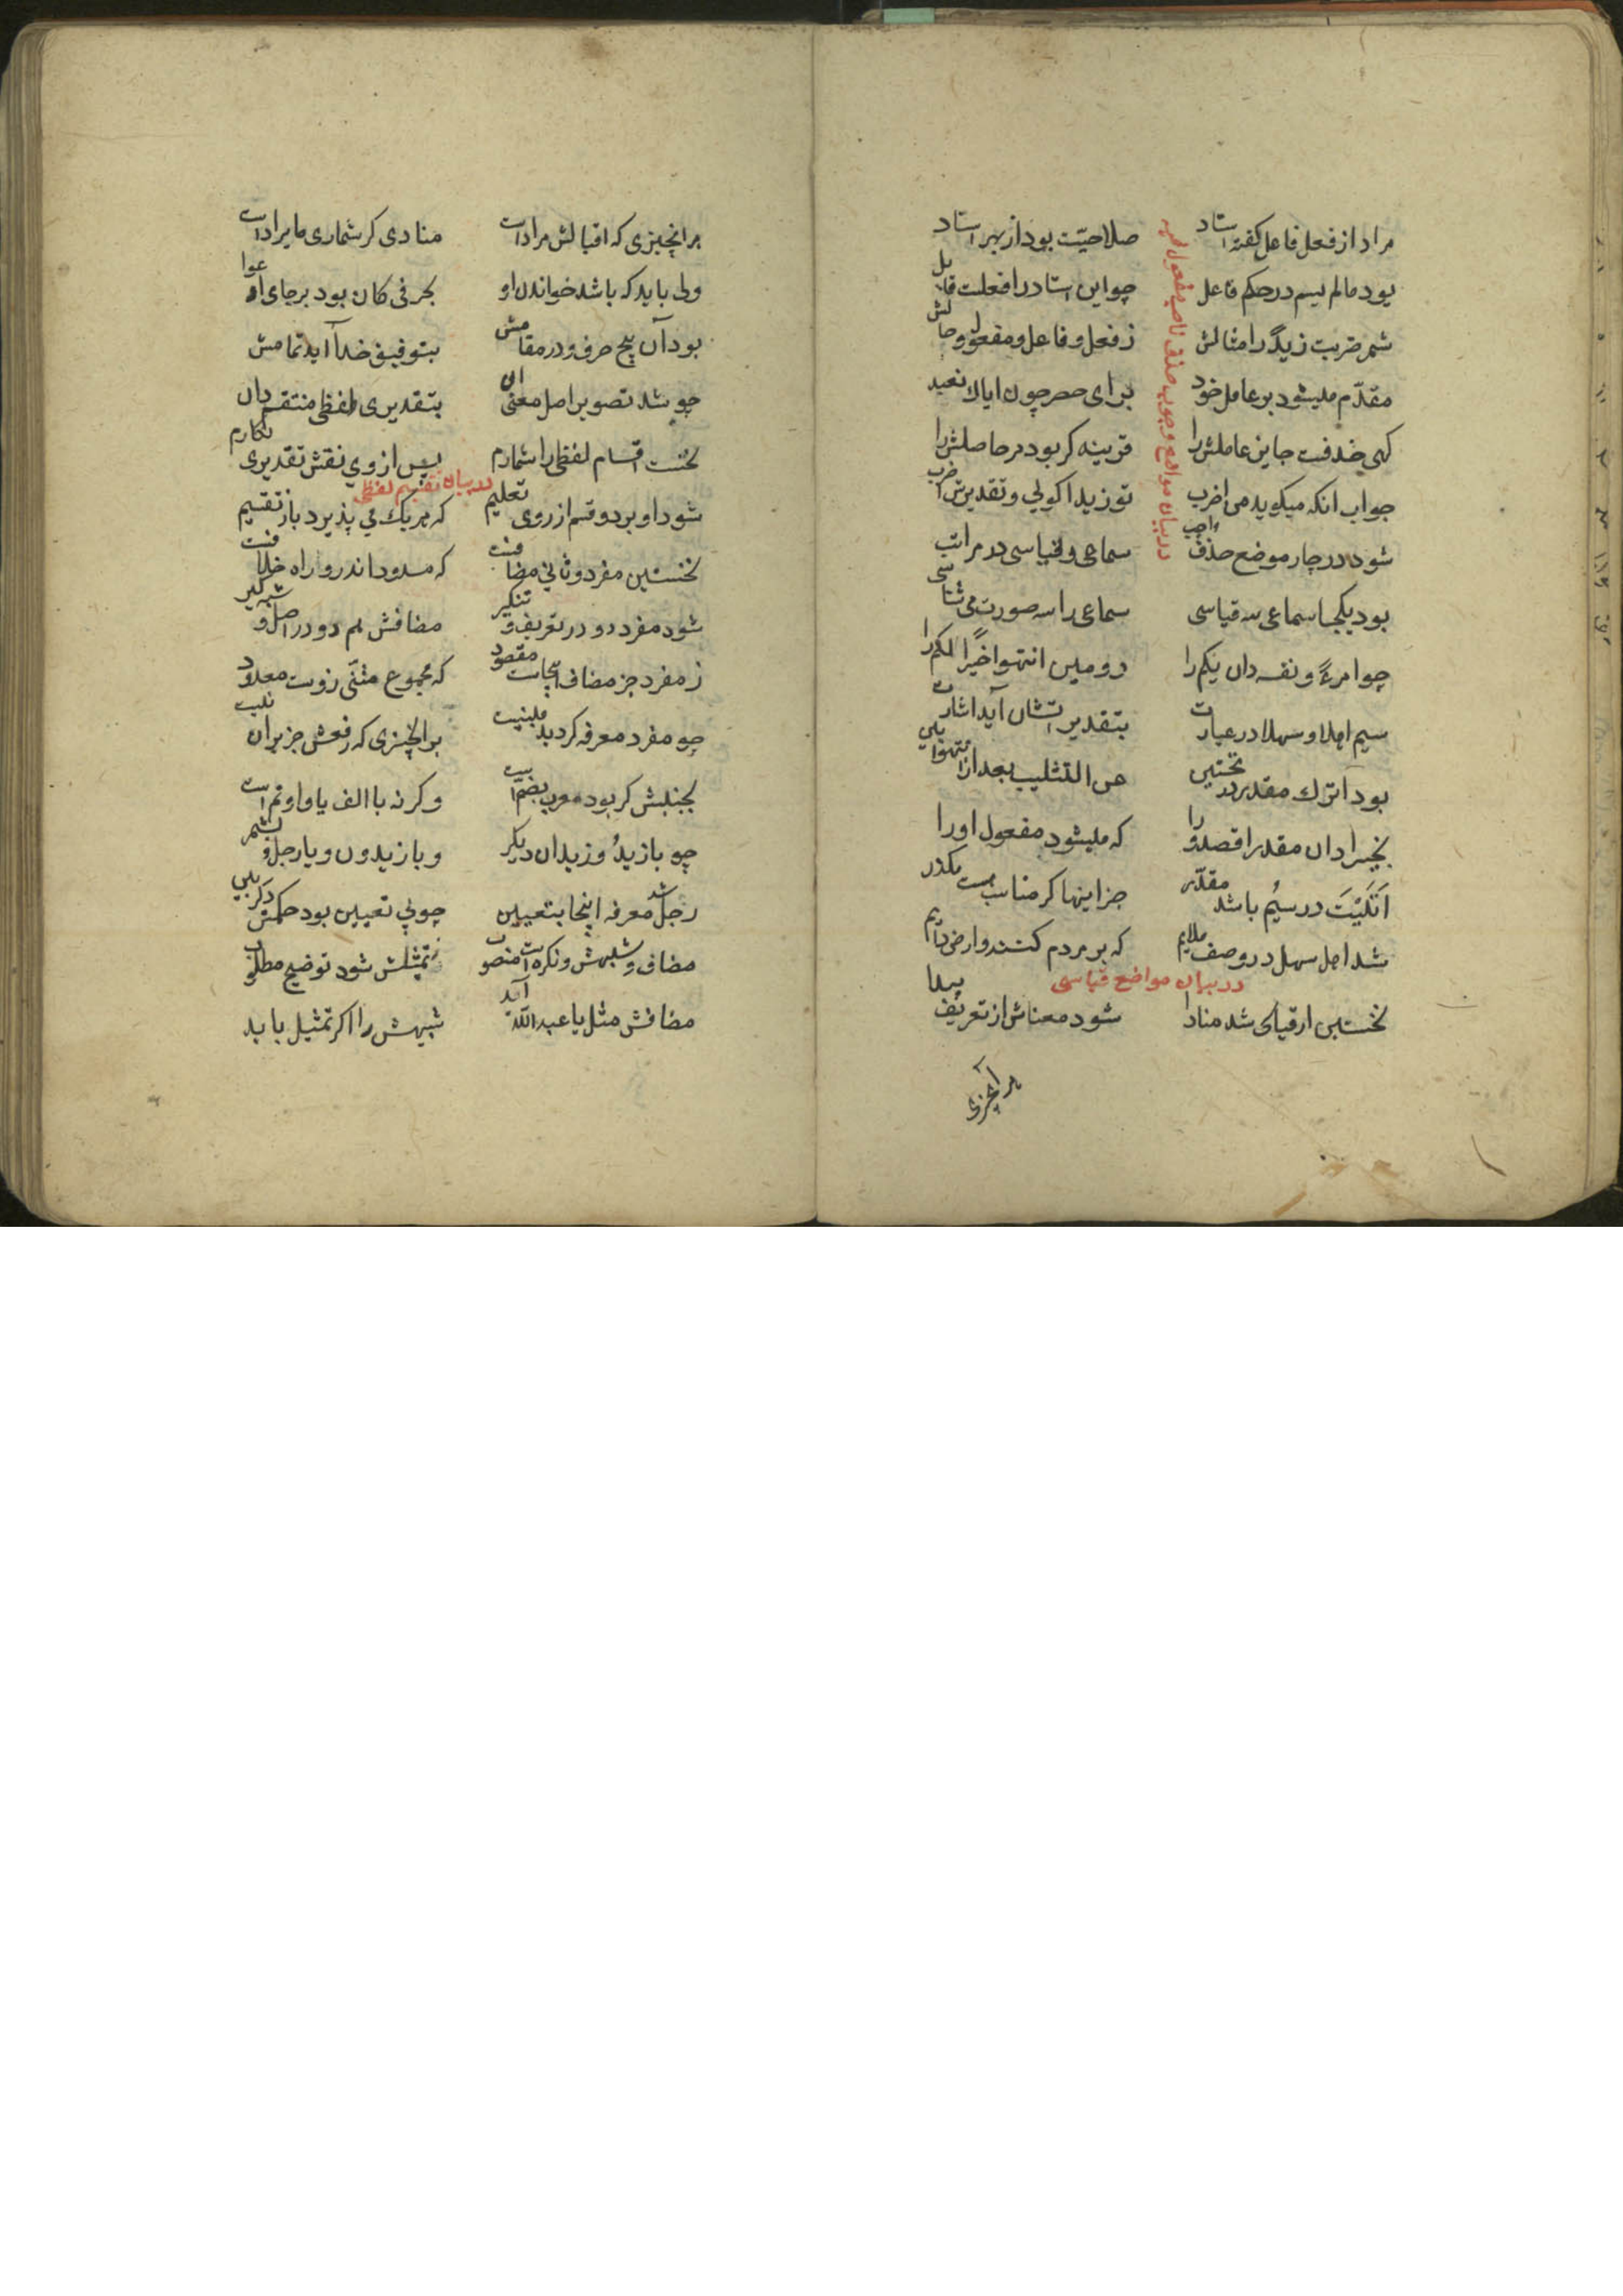 مراد از فعل فاعل گفته استاد صلاحیّت بود از بهر استاد
بود مالم یسم در حکم فاعل چو این استاد را فعلست قابل
شمر ضربت زیدًا را مثالش ز فعل و فاعل و مفعول و حاصلش
مقدّم میشود بر عامل خود برای حصر چون ایاك نعبد
کهی حذفست جایز عاملش را قرینه کر بود در حاصلش را
جواب انکه میکوید من اضرب تو زیدا کوئی و تقدیرش اضرب
در بیان مواضع وجوب حذف ناصب مفعول به
شود در چار موضع حذف واجب سماعی و قیاسی در مراتب
بود یکجا سماعی سه قیاسی سماعی را سه صورت می شناسی
چو امرءً و نفسه دان یکم را دومین انتهوا خیرًا لکم را
سیم اهلا و سهلا در عبارت بتقدیراتشان آید اشارت
بود اترك مقدر در نخستین عن التثلیث بعد از انتهوا بین
بخیرا دان مقدر اقصدوا را که میشود مفعول او را
اَتَیْتَ در سیُم باشد مقدّر جز اینها کر مناسب هست مکذر
شد اهل سهل در وصف ملایم که بر مردم کنند و ارض دایم
در بیان مواضع قیاسی
نخستین از قیاسی شد منادا شود معناش از تعریف پیدا
هر آنچیزی
هر انچیزی که اقبالش مراد است منادی کر شماری ما یراد است
ولی باید که باشد خواندن او بحرفی کان بود بر جای ادعوا
بود آن پنج حرف و در مقامش بتوفیق خدا آید تمامش
چو شد تصویر اصل معنی ان بتقدیری و لفظی منقسم دان
نخست اقسام لفظی را شمارم پس از وی نقش تقدیری نکارم
در بیان تقسیم لفظی
شود او بر دو قسم از روی تعلیم که هر یك می پذیرد باز تقسیم
نخستین مفرد و ثانی مضافست که مسدود اندرو راه خلافست
شود مفرد دو در تعریف و تنکیر مضافش هم دو در اصل و شبه کیر
ز مفرد جز مضاف اینجاست مقصود که مجموع مثنّی زوست معدود
چو مفرد معرفه کردید مبنیست بر انچیزی که رفعش جز بران نیست
بجنبش کر بود معرب بضم است و کرنه با الف یا واو ضم است
چو یا زیدُ و زیدان دیکر و یا زیدون و یا رجل و بشمر
رجل شد معرفه اینجا بتعیین چو بی تعیین بود حکمش دکر بین
مضاف و شبهش و نکره است منصوب ز تمثیلش شود توضیح مطلوب
مضافش مثل یا عبد اللّه آید شبیهش را اکر تمثیل باید